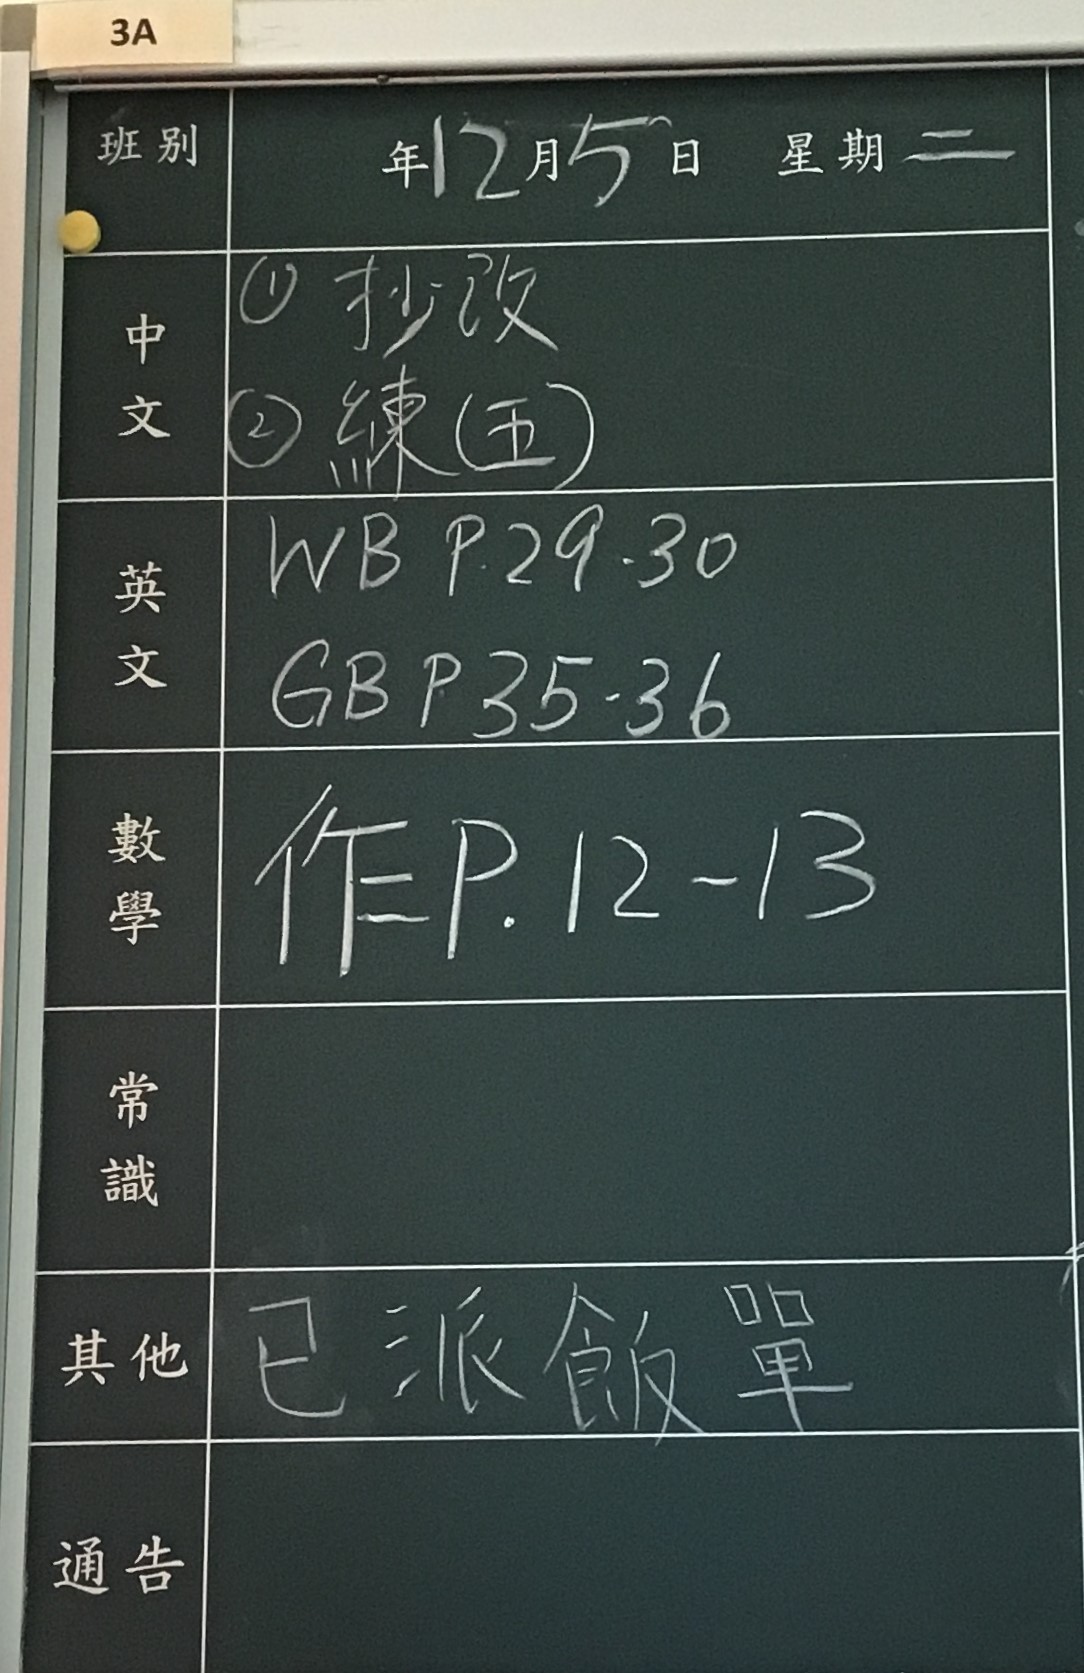 3A
班別 年12月5日 星期二
中文
① 抄改
② 練(五)
英文
WB P.29-30
GB P35-36
數學
作P.12-13
常識
其他 已派飯單
通告